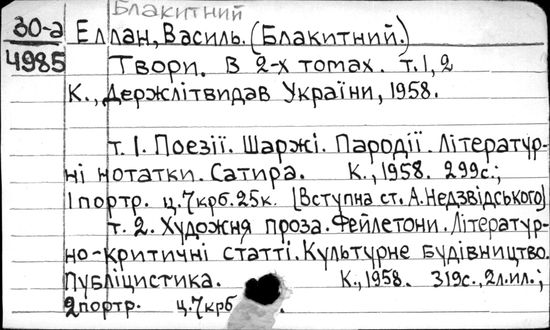 Блакитний
30-а Еллан, Василь. (Блакитний.)
4985 Твори. В 2-х томах. т. 1, 2
К., Держлітвидав України, 1958.
т. 1. Поезії. Шаржі. Пародії. Літератур-
ні нотатки. Сатира. К., 1958. 299с.;
1 портр. ц. 7крб. 25к. [Вступна ст. А. Недзвідського]
т. 2. Художня проза. Фейлетони. Літератур-
но-критичні статті. Культурне будівництво.
Публіцистика. К., 1958. 319с., 2л.ил.;
2портр. ц. 7крб .